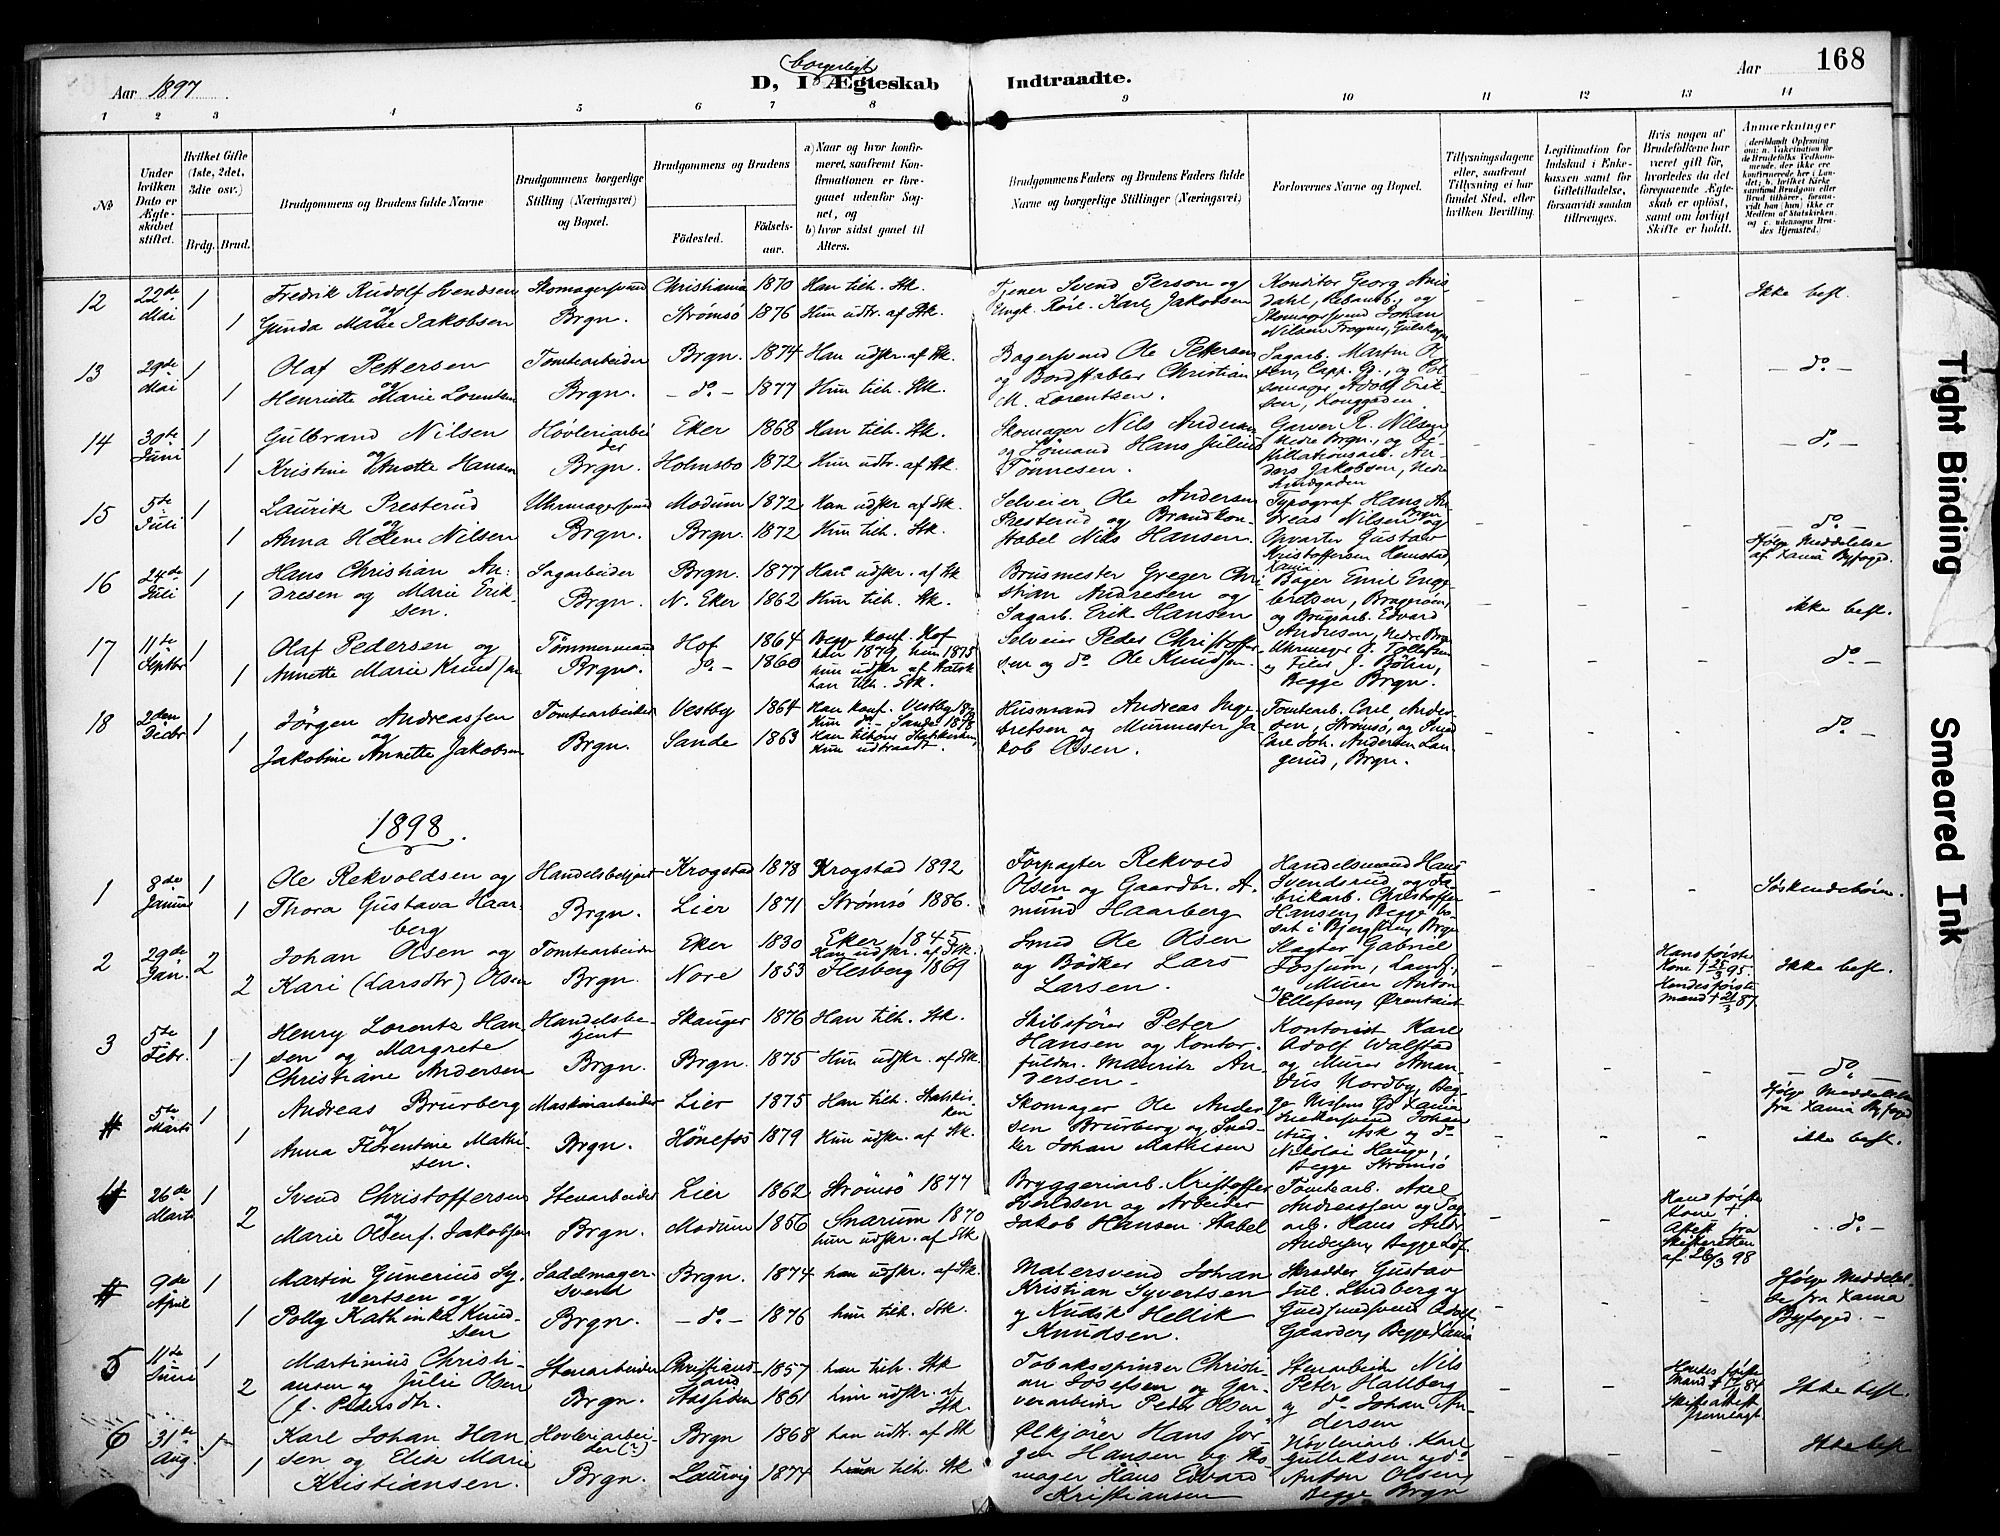 168
Aar 1897
borgerligt
D, I Ægteskab Indtraadte.
Aar
1 2 3 4 5 6 7 8 9 10 11 12 13 14
No
Under hvilken Dato er Ægteskabet stiftet.
Hvilket Gifte (1ste, 2det, 3die osv.)
Brdg. Brud.
Brudgommens og Brudens fulde Navne
Brudgommens borgerlige Stilling (Næringsvei) og Bopæl.
Brudgommens og Brudens
Fødested. Fødsels-aar.
a) Naar og hvor konfirmeret, saafremt Konfirmationen er foregaaet udenfor Sognet, og
b) hvor sidst gaaet til Alters.
Brudgommens Faders og Brudens Faders fulde Navne og borgerlige Stillinger (Næringsvei)
Forlovernes Navne og Bopæl.
Tillysningsdagene eller, saafremt Tillysning ei har fundet Sted, efter hvilken Bevilling.
Legitimation for Indskud i Enkekassen samt for Giftetilladelse, forsaavidt saadan tiltrænges.
Hvis nogen af Brudefolkene har været gift før, hvorledes da det foregaaende Ægteskab er opløst, samt om lovligt Skifte er holdt.
Anmærkninger
12 22de Mai 1 1 Fredrik Rudolf Svendsen og Gunda Marie Jakobsen Skomagersvend Brgn. Christiania Strømsø 1870 1876 Han tilh. Stk. Hun udtr. af Stk. Tjener Svend Person og Ungk. Karl Jakobsen Konditor Georg Anis Dahl, og Skomagersvend Johan Nilsen Frognes, Gulskogen Ikke besl.
13 29de Mai 1 1 Olaf Pettersen og Henriette Marie Lorentsen Tomtearbeider Brgn. Brgn. - do - 1874 1877 Han udskr. af Stk. Hun tilh. Stk. Bagersvend Ole Pettersen og Bordstabler Christian M. Lorentsen. Sagarb. Martin Olsen, Capp. G., og Pølsemager Adolf Eriksen, Konggaden - do -
14 30te Juni 1 1 Gulbrand Nilsen og Kristine Anette Hansen Høvleriarbeider Brgn. Eker Holmsbo 1868 1872 Han tilh. Stk. Hun udtr. af Stk. Skomager Nils Andersen og Sømand Hans Julius Tønnesen. Garver R. Nilsen, Nedre Brgn., og Destillationsarb. Anders Jakobsen, Nedre Strandgaden - do -
15 5te Juli 1 1 Lauritz Presterud og Anna Helene Nilsen Uhrmagersvend Brgn. Modum Brgn. 1872 1872 Han udskr. af Stk. Hun tilh. Stk. Selveier Ole Andersen Presterud og Brandkonstabel Nils Hansen. Typograf Hans Andreas Nilsen, Brgn og Opvarter Gustav Kristoffersen Hemstad, Xania do Ifølge Meddelelse af Xania Byfoged.
16 24de Juli 1 1 Hans Christian Andresen og Marie Eriksen. Sagarbeider Brgn. Brgn. N. Eker 1877 1862 Han udskr. af Stk Hun tilh. Stk. Brusmester Greger Christian Andresen og Sagarb. Erik Hansen Bager Emil Engebretsen, Bragerøen, og Brugsarb. Edvard Andresen, Nedre Brgn ikke besl.
17 11te Septbr 1 1 Olaf Pedersen og Annette Marie Knudsen Tømmermand Brgn. Hof do - 1864 1860 Begge konf. Hof han 1879, hun 1875 hun udskr. af Statsk han tilh. Stk. Selveier Peder Christoffersen og do Ole Knudsen. Uhrmager J. Tollefsen og Filer J. Bøhn, Begge Brgn. do -
18 2den Decbr 1 1 Jørgen Andreassen og Jakobine Annette Jakobsen Tomtearbeider Brgn. Vestby Sande 1864 1863 Han konf. Vestby Hun do - Sande 1878 Han tilhører Statskirken, Hun udtraadt. Husmand Andreas Ingebretsen og Murmester Jakob Olsen. Tomtearb. Carl Andersen, Strømsø, og Smed Carl Joh. Andersen Langerud, Brgn. do -
1898.
1 8de Januar 1 1 Ole Rekvoldsen og Thora Gustava Haarberg Handelsbetjent Brgn. Krogstad Lier 1878 1871 Krogstad 1892 Strømsø 1886. Forpagter Rekvold Olsen og Gaardbr. Amund Haarberg Handelsmand Hans Svendsrud og Fabrikarb. Christoffer Hansen, Begge bosat i Bjerg Brgn Søskendebørn.
2 29de Jan. 2 2 Johan Olsen og Kari (Larsdtr) Olsen Tomtearbeider Brgn. Eker Nore 1830 1853 Eker 1845 Han udskr. af Stk. Flesberg 1869 Smed Ole Olsen og Bødker Lars Larsen. Slagter Gabriel Fossum, Landf., og Murer Anton Ellefsen, Ørentajet Hans første Kone † 25/3 95. Hendes første mand † 21/3 87. Ikke besl.
3 5te Febr. 1 1 Henry Lorentz Hansen og Margrete Christiane Andersen Handelsbetjent Brgn. Skauger Brgn. 1876 1875 Han tilh. Stk. Hun udskr. af Stk. Skibsfører Peter Hansen og Kontorfuldm. Mauritz Andersen. Kontorist Karl Adolf Walstad og Murer Amandus Nordby, Begge Xania do Ifølge Meddelelse fra Xania Byfoged
5te Marts 1 1 Andreas Brurberg og Anna Florentine Mathisen. Maskinarbeider Brgn. Lier Hønefos 1875 1879 Han tilh. Statskirken Hun udskr. af Stk. Skomager Ole Andersen Brurberg og Snedker Johan Mathisen Snedkersvend Johan Aug. Ask og do Nikolai Hauge, Begge Strømsø ikke besl.
4 26de Marts 1 2 Svend Christoffersen og Marie Olsen f. Jakobsen Stenarbeider Brgn. Lier Modum 1862 1856 Strømsø 1877 Snarum 1870 hun udskr. af Stk Bryggeriarb. Kristoffer Svendsen og Arbeider Jakob Hansen Stabel Tomtearb. Axel Andreassen og Sagarb. Hans Andr. Andersen, Begge Ldf. Attest fra Skifteretten af 26/3 98 - do -
9de April 1 1 Martin Gunerius Syvertsen og Polly Kathinka Knudsen Sadelmagersvend Brgn. Brgn. - do - 1874 1876 han udskr. af Stk. hun tilh. Stk. Malersvend Johan Kristian Syvertsen og Kudsk Hellik Knudsen. Skrædder Gustav Jul. Lindberg og Gaarder, Begge Xania Ifølge Meddelelse fra Xania Byfoged. -
5 11te Juni 1 2 Martinius Christiansen og Julie Olsen f. Pedersdtr. Stenarbeider Brgn. Christiansand 1857 1861 han tilh. Stk hun udskr. af Stk. Tobaksspinder Christian Josefsen og Garverarbeider Peder Olsen Stenarbeider Nils Peter Hallberg og do Johan Andersen Hendes første Mand † 84 Skifteattest fremlagt. Ikke besl.
6 31te Aug. 1 1 Karl Johan Hansen og Elise Marie Kristiansen. Høvleriarbeider (?) Brgn. Brgn Laurvig 1868 1874 han udtr. af Stk hun tilh. Stk Ølkjører Hans Jørgen Hansen og Skomager Hans Edvard Kristiansen Høvleriarb. Karl Gulliksen og do Anton Olsen, Begge Brgn Ikke besl
Tight Binding
Smeared Ink